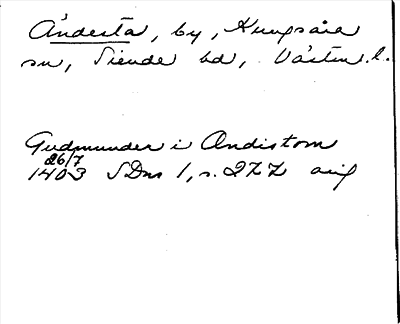 Åndesta, by, Kungsåra
sn, Siende hd, Västm.l.
Gudmunder i Andistom
26/7
1403 SDns 1, s. 277 orig